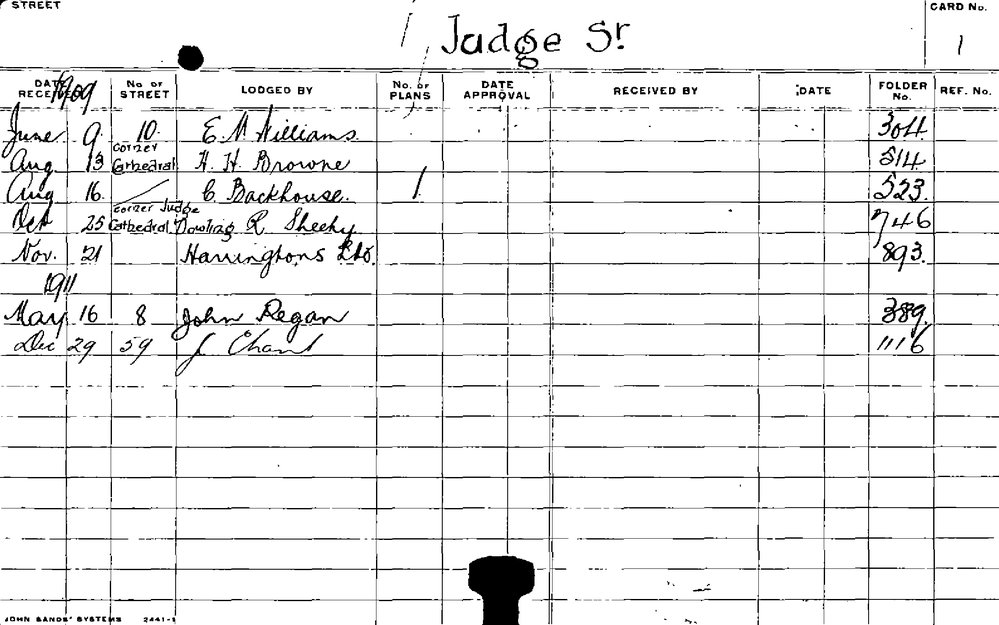 STREET Judge St CARD No. 1
DATE RECEIVED No. OF STREET LODGED BY No. OF PLANS DATE APPROVAL RECEIVED BY DATE FOLDER No. REF. No.
1909
June 9. 10. E. W Williams. 304
Aug. 13 corner Cathedral H. H. Browne 514
Aug 16. C. Backhouse. 1 523.
Oct 25 corner Judge Cathedral Dowling R. Sheehy 746
Nov. 21 Harringtons Ltd. 893.
1911
May 16 8 John Regan 389.
Dec 29 59 J Chant 1116
JOHN SANDS' SYSTEMS